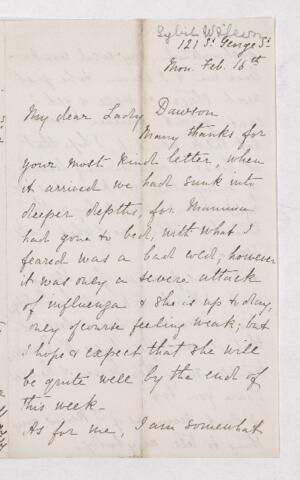 121 St. George St
Mon. Feb. 16th
My dear Lady Dawson
Many thanks for
your most kind letter, when
it arrived we had sunk into
deeper depths, for Mamma
had gone to bed, with what I
feared was a bad cold; however
it was only a severe attack
of influenza & she is up today,
only of course feeling weak; but
I hope & expect that she will
be quite well by the end of
this week—
As for me, I am somewhat